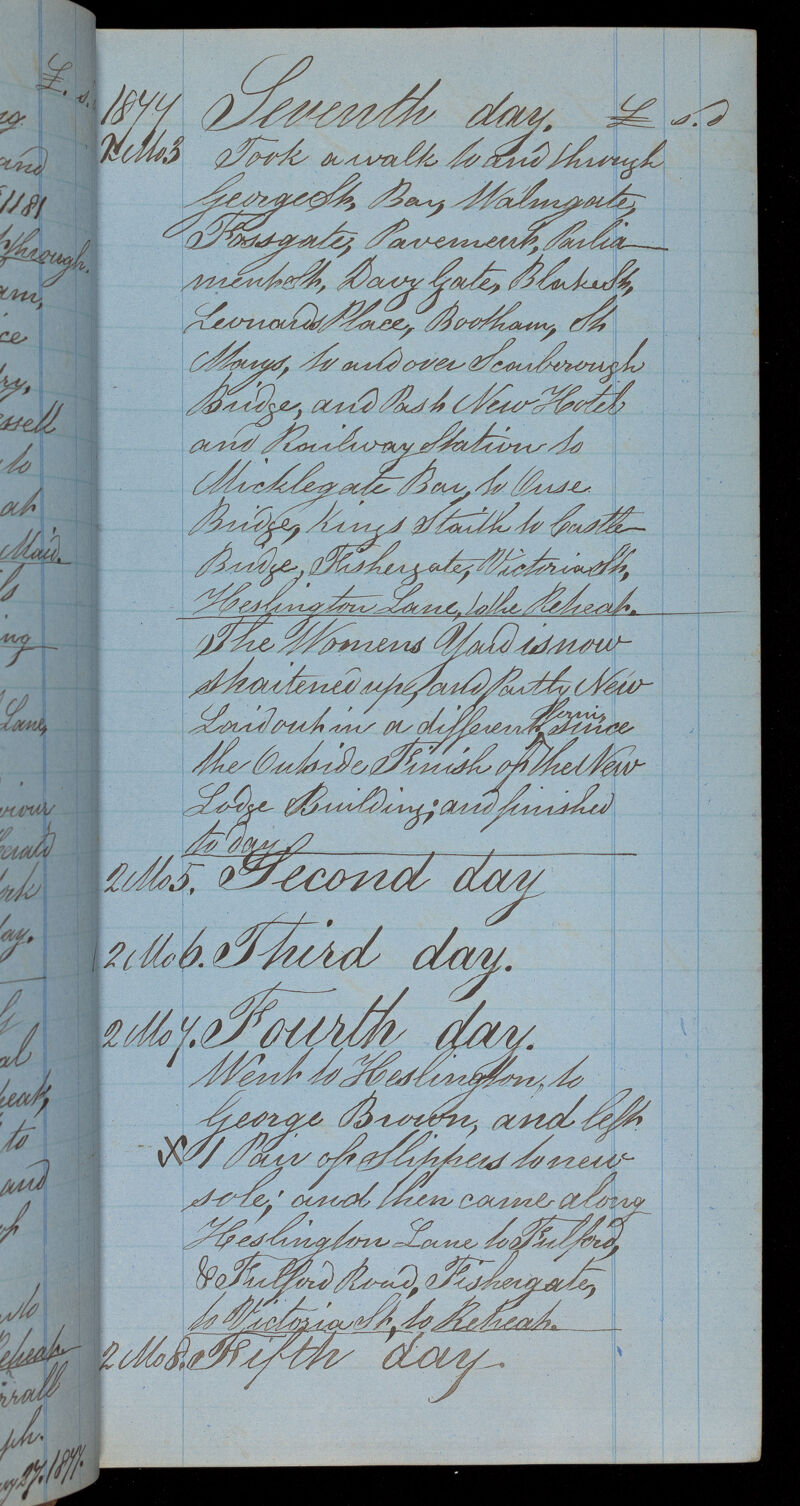 £. s.
1181
through.
ssell
to
at
Maid.
ing
Lane,
viour
Herald
York
day.
al
to
and
of
Reheat.
1877.
1877 Seventh day. £ s. d
2 Mo 3 Took a walk to and through
George St, Bar, Walmgate,
Fossgate, Pavement, Parlia-
ment St, Davy Gate, Blake St,
Leonards Place, Bootham, St
Marys, to and over Scarborough
Bridge, and Past New Hotel
and Railway Station to
Micklegate Bar, to Ouse
Bridge, Kings Staith to Castle
Bridge, Fishergate, Victoria St,
Heslington Lane, to the Reheat.
The Womens Yard is now
shaitened up, and Partly New
Laid out in a different form since
the Outside Finish of the New
Lodge Building; and finished
to day.
2 Mo 5. Second day
2 Mo 6. Third day.
2 Mo 7. Fourth day.
Went to Heslington, to
George Brown, and left
X 1 Pair of Slippers to new
sole; and then came along
Heslington Lane to Fulford,
& Fulford Road, Fishergate,
to Victoria St, to Reheat.
2 Mo 8. Fifth day.